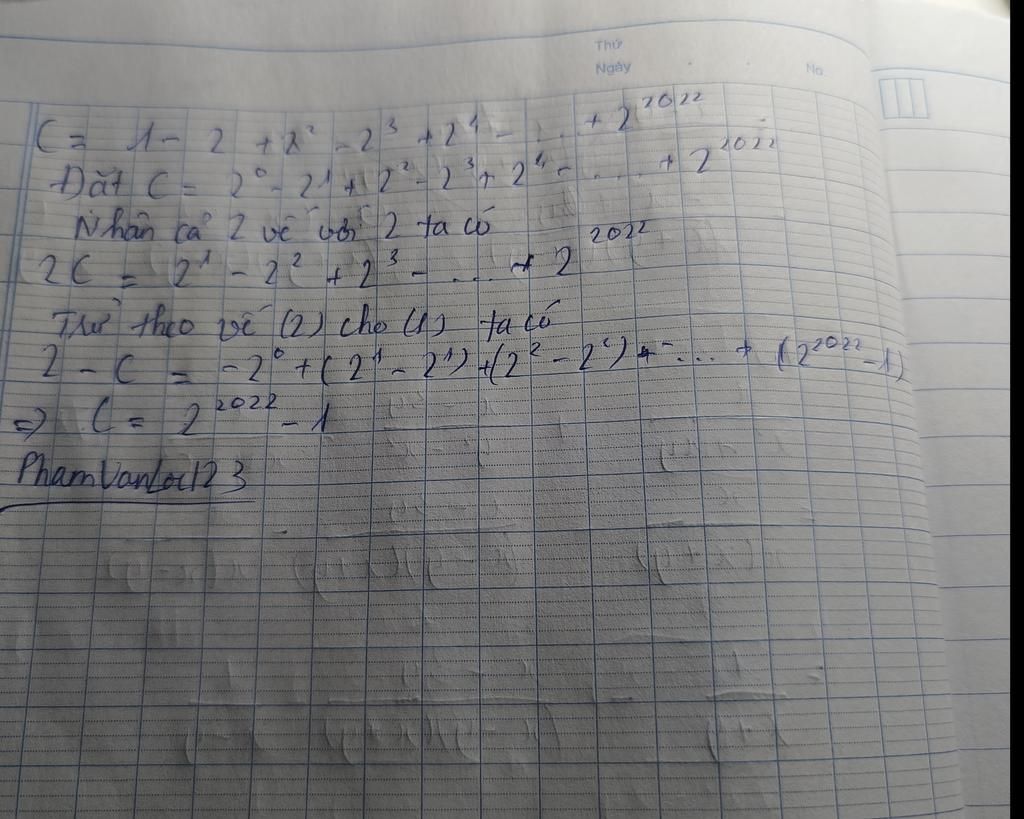 Thứ
Ngày
No.
C = 1 - 2 + 2² - 2³ + 2⁴ - ... + 2²⁰²²
Đặt C = 2⁰ - 2¹ + 2² - 2³ + 2⁴ - ..... + 2²⁰²²
Nhân cả 2 vế với 2 ta có
2C = 2¹ - 2² + 2³ - .... + 2²⁰²²
Trừ theo vế (2) cho (1) ta có
2 - C = -2⁰ + (2¹ - 2¹) + (2² - 2²) + -... + (2²⁰²² - 1)
=> C = 2²⁰²² - 1
PhamVanLoc123